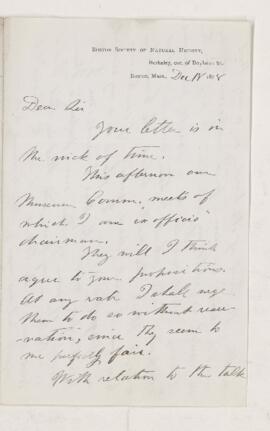 BOSTON SOCIETY OF NATURAL HISTORY,
Berkeley, cor. of Boylston St.
BOSTON, MASS., Dec 18
Dear Sir
Your letter is in
the nick of time.
This afternoon our
Museum Comm. meets of
which I am "ex officio"
chairman.
They will I think
agree to your propositions.
At any rate I shall urge
them to do so without reser-
vation, since they seem to
me perfectly fair.
With relation to the talk